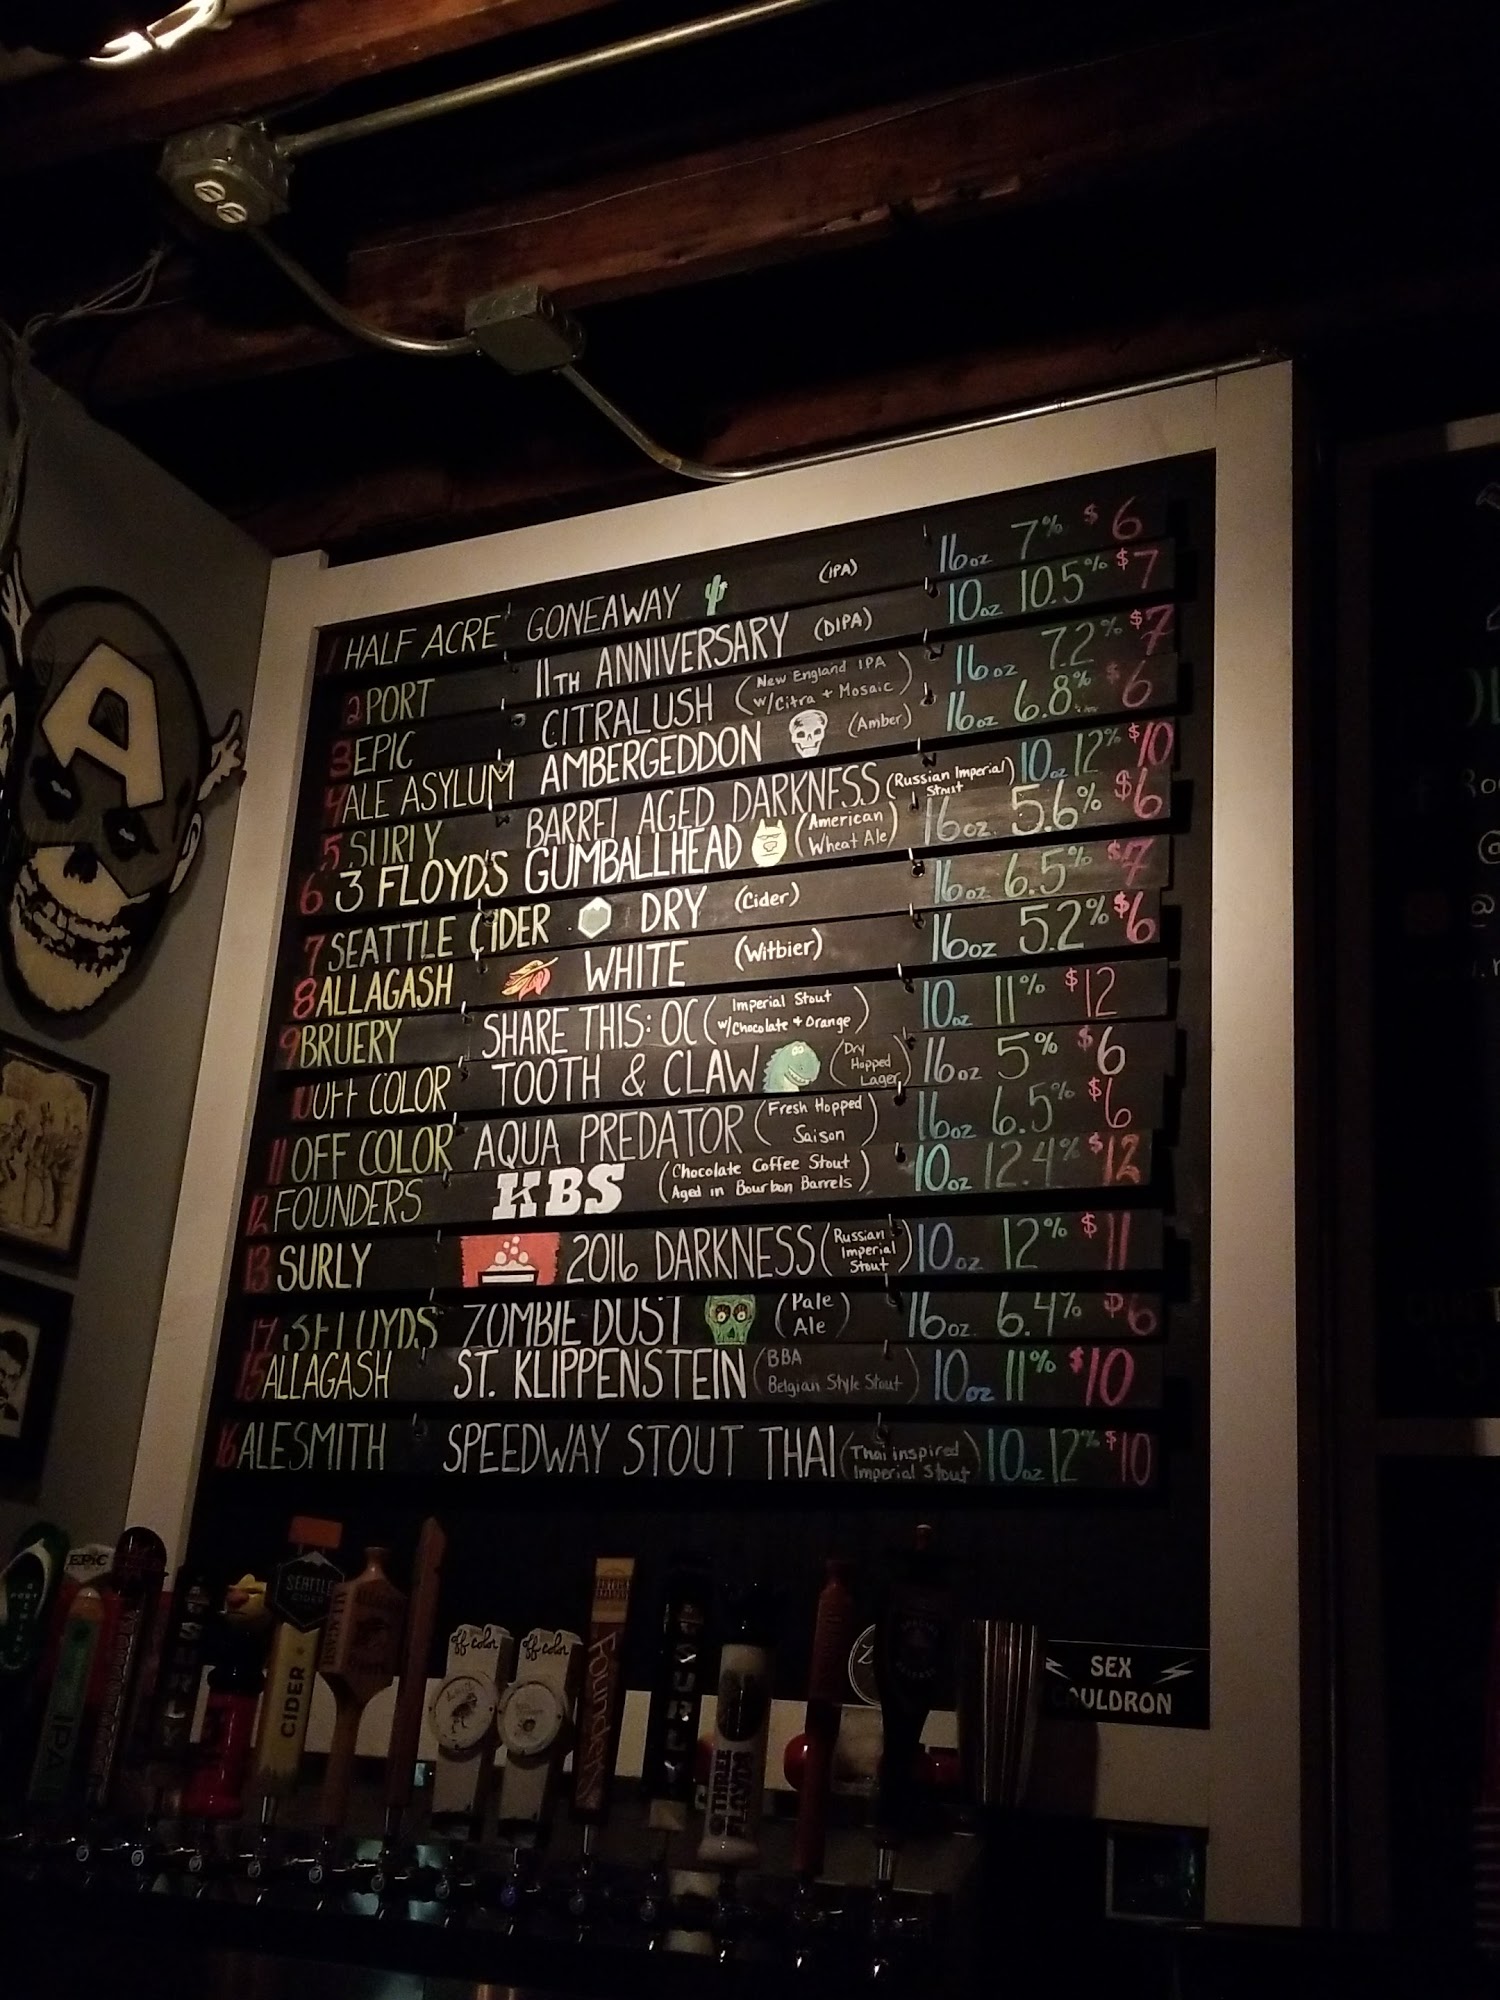 1 HALF ACRE GONEAWAY (IPA) 16oz 7% $6
2 PORT 11TH ANNIVERSARY (DIPA) 10oz 10.5% $7
3 EPIC CITRALUSH (New England IPA w/Citra + Mosaic) 16oz 7.2% $7
4 ALE ASYLUM AMBERGEDDON (Amber) 16oz 6.8% $6
5 SURLY BARREL AGED DARKNESS (Russian Imperial Stout) 10oz 12% $10
6 3 FLOYDS GUMBALLHEAD (American Wheat Ale) 16oz 5.6% $6
7 SEATTLE CIDER DRY (Cider) 16oz 6.5% $7
8 ALLAGASH WHITE (Witbier) 16oz 5.2% $6
9 BRUERY SHARE THIS: OC (Imperial Stout w/Chocolate + Orange) 10oz 11% $12
10 OFF COLOR TOOTH & CLAW (Dry Hopped Lager) 16oz 5% $6
11 OFF COLOR AQUA PREDATOR (Fresh Hopped Saison) 16oz 6.5% $6
12 FOUNDERS KBS (Chocolate Coffee Stout Aged in Bourbon Barrels) 10oz 12.4% $12
13 SURLY 2016 DARKNESS (Russian Imperial Stout) 10oz 12% $11
14 3 FLOYDS ZOMBIE DUST (Pale Ale) 16oz 6.4% $6
15 ALLAGASH ST. KLIPPENSTEIN (BBA Belgian Style Stout) 10oz 11% $10
16 ALESMITH SPEEDWAY STOUT THAI (Thai inspired Imperial Stout) 10oz 12% $10
A
EPIC
IPA
SEATTLE CIDER
CIDER
off color
off color
Founders
THREE FLOYDS
SEX
CAULDRON